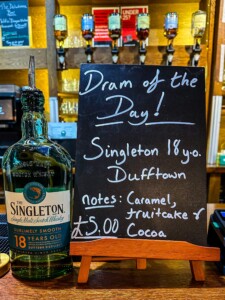 Dram of the
Day!
Singleton 18 y.o.
Dufftown
notes: Caramel,
fruitcake &
£5.00 Cocoa
THE
SINGLETON
Single Malt Scotch Whisky
18 YEARS OLD